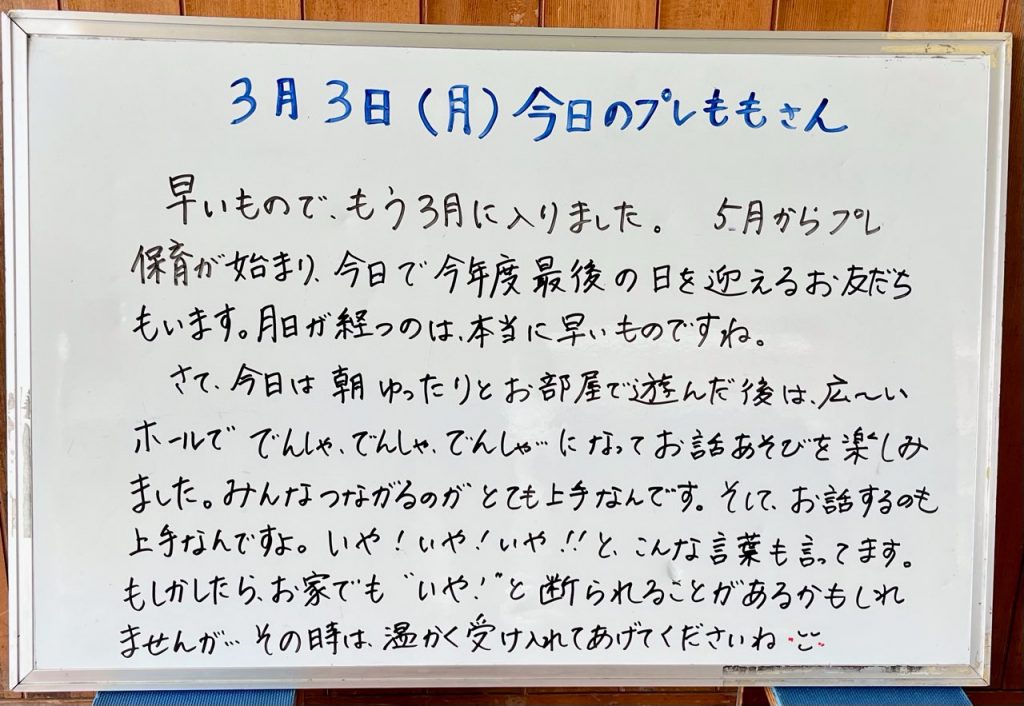 3月3日(月)今日のプレももさん
早いもので、もう3月に入りました。 5月からプレ
保育が始まり、今日で今年度最後の日を迎えるお友だち
もいます。月日が経つのは、本当に早いものですね。
さて、今日は朝ゆったりとお部屋で遊んだ後は、広〜い
ホールででんしゃ、でんしゃ、でんしゃ…になってお話あそびを楽しみ
ました。みんなつながるのがとても上手なんです。そして、お話するのも
上手なんですよ。いや!いや!いや!!と、こんな言葉も言ってます。
もしかしたら、お家でも“いや!”と断られることがあるかもしれ
ませんが…その時は、温かく受け入れてあげてくださいね